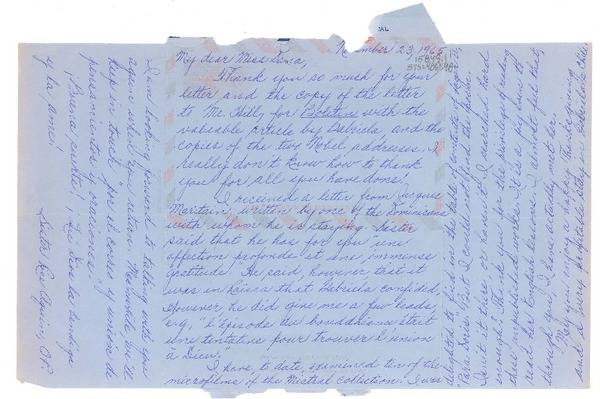 JAL
November 23, 1965
My dear Miss Dana,
Thank you so much for your
letter and the copy of the letter
to Mr. Hilly for Boletín with the
valuable article by Gabriela, and the
copies of the two Nobel addresses. I
really don't know how to thank
you for all you have done!
I received a letter from Jacques
Maritain, written by one of the Dominicans
with whom he is staying. Latter
said that he has for you "une
affection profonde et une immense
gratitude." He said, however, that it
was in Raïssa that Gabriela confided.
However, he did give me a few leads,
e.g., "L'épisode du bouddhisme étant
une tentative pour trouver l'union
à Dieu."
I have, to date, examined ten of the
microfilms of the Mistral collection. I was
delighted to find in the table of contents of
but I could not find the
Is it there or haven't I searched hard
enough? Thank you for the privilege of seeing
these unpublished works. It is a joy
read her English lessons. I
through you, I have actually met her.
May you enjoy a happy Thanksgiving
and a very profitable stay in
I am looking forward to talking with you
again when you return. Meanwhile, we'll
keep in touch "por el correo" y unión de
pensamientos y oraciones.
¡Buena suerte!
y la ama!
Sister Rose Aquin, O.P.